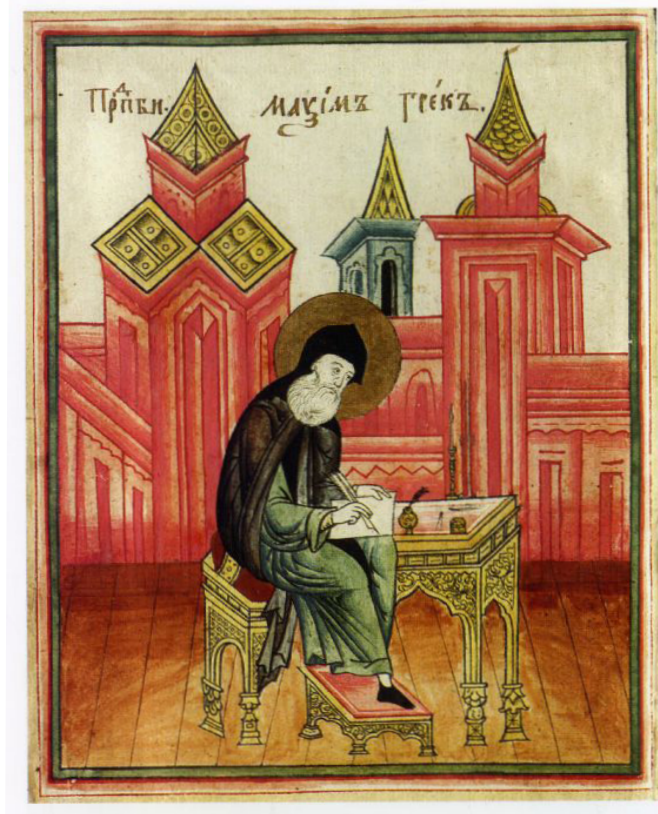 Прпⷣбн. маѯі́мъ гре́къ.